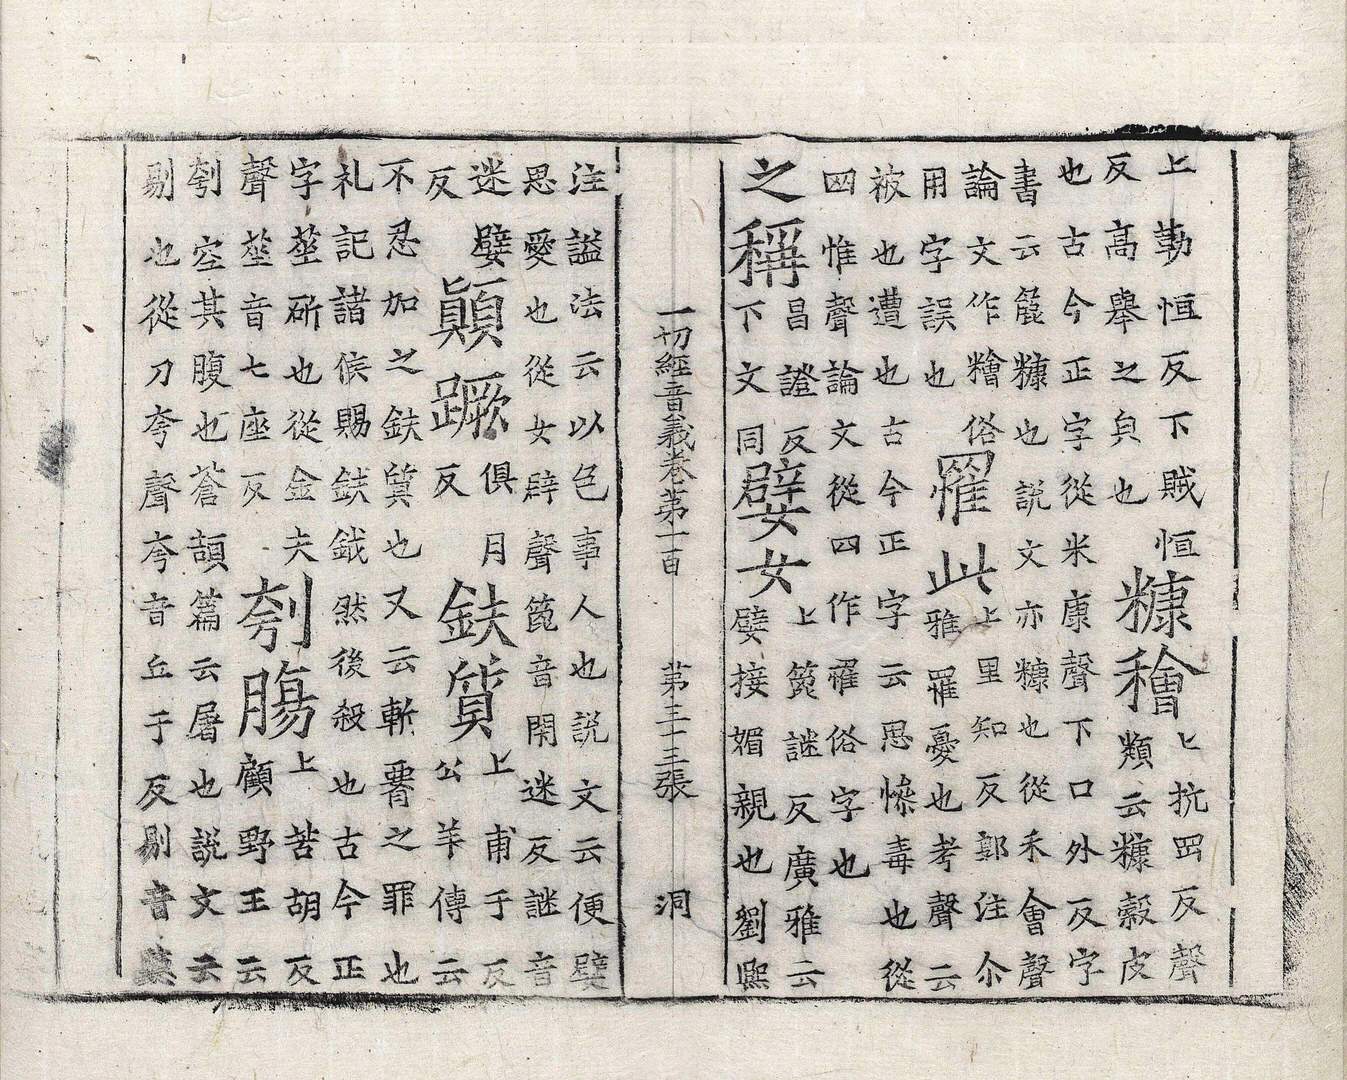 上勒恒反下賊恒
反高舉之皃也糠穭上抗罡反聲
類云糠穀皮
也古今正字從米康聲下口外反字
書云麄糠也說文亦糠也從禾會聲
論文作䊦俗
用字誤也罹此上里知反鄭注尒
雅罹憂也考聲云
被也遭也古今正字云思慘毒也從
四惟聲論文從四作罹俗字也
之稱昌證反
下文同嬖女上箆謎反廣雅云
嬖接媚親也劉熙
一切經音義卷苐一百 苐三十三張 洞
注謚法云以色事人也說文云便嬖
思愛也從女辟聲箆音閇迷反謎音
迷嬖顛蹶俱月
反反鈇質上甫于反
公羊傳云
不忍加之鈇質也又云斬署之罪也
礼記諸侯賜鈇鉞然後殺也古今正
字莝斫也從金夫
聲莝音七座反刳腸上苦胡反
顧野王云
刳空其腹也蒼頡篇云屠也說文云
剔也從刀夸聲夸音丘于反剔音